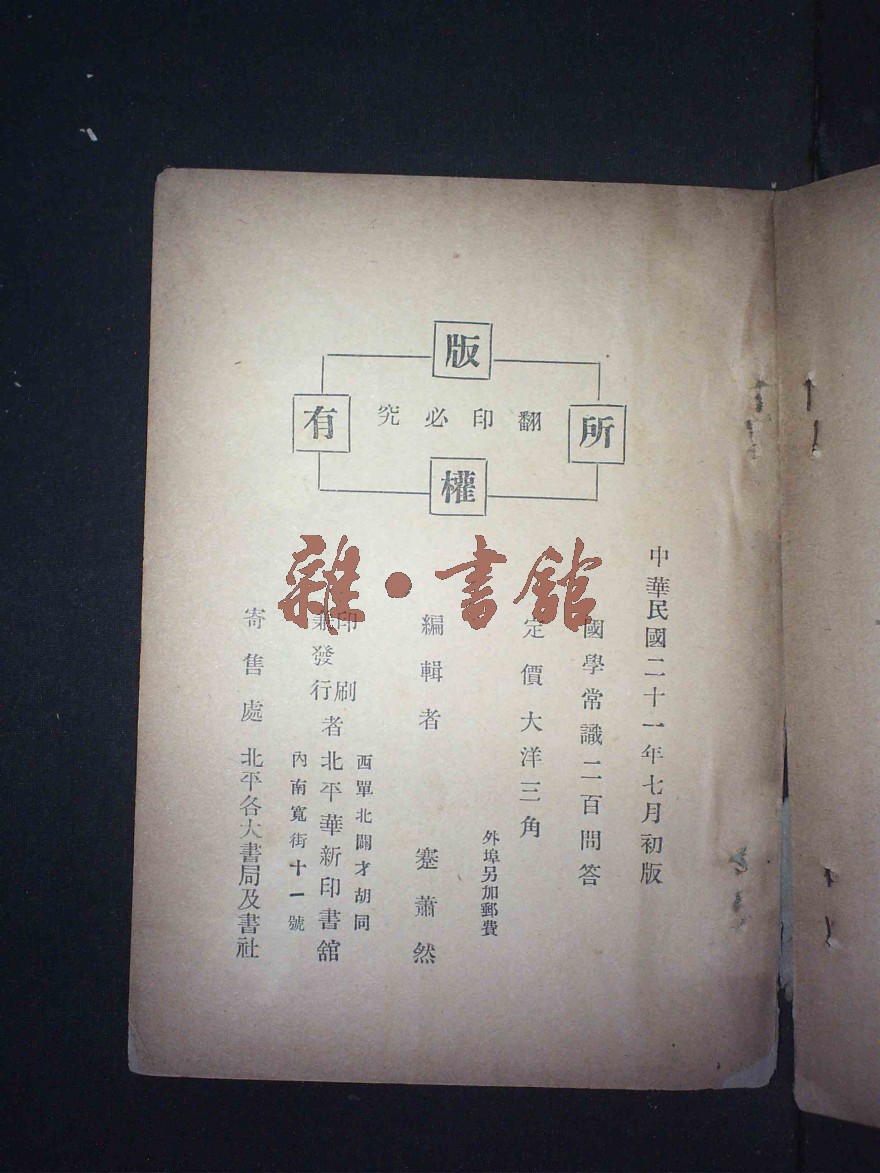 版權所有
翻印必究
中華民國二十一年七月初版
國學常識二百問答
定價大洋三角
外埠另加郵費
編輯者 蹇蕭然
印刷兼發行者
西單北闢才胡同
北平華新印書舘
內南寬街十一號
寄售處 北平各大書局及書社
雜·書舘